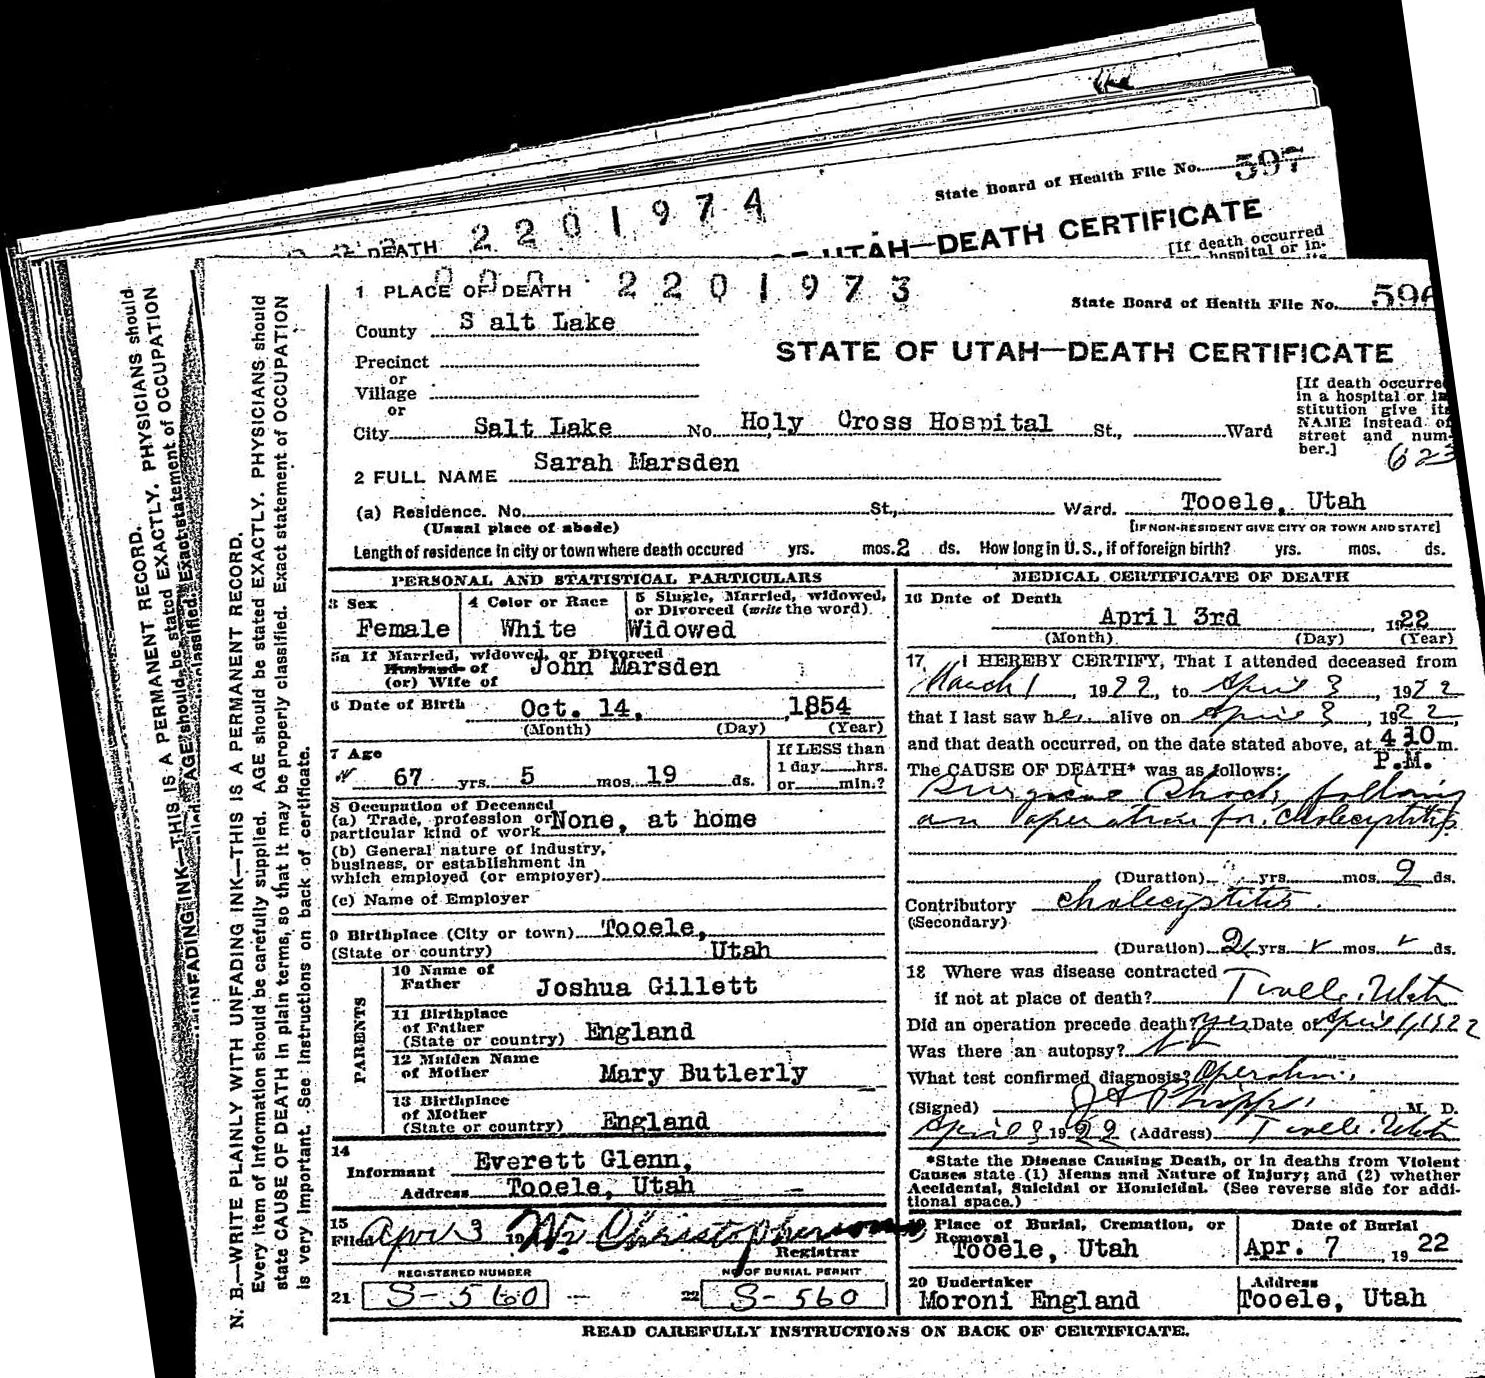 State Board of Health File No. 597
2201974
OF UTAH—DEATH CERTIFICATE
DEATH
[If death occurred
hospital or in-
1 PLACE OF DEATH 000 2201973
State Board of Health File No. 596
County Salt Lake
STATE OF UTAH—DEATH CERTIFICATE
Precinct
or
Village
or
City Salt Lake No. Holy Cross Hospital St., Ward
[If death occurred
in a hospital or in
stitution give its
NAME instead of
street and num-
ber.]
623
2 FULL NAME Sarah Marsden
(a) Residence. No. St., Ward. Tooele, Utah
(Usual place of abode) [IF NON-RESIDENT GIVE CITY OR TOWN AND STATE]
Length of residence in city or town where death occured yrs. mos. 2 ds. How long in U. S., if of foreign birth? yrs. mos. ds.
PERSONAL AND STATISTICAL PARTICULARS
3 Sex Female
4 Color or Race White
5 Single, Married, widowed,
or Divorced (write the word).
Widowed
5a If Married, widowed, or Divorced
Husband of John Marsden
(or) Wife of
6 Date of Birth Oct. 14, 1854
(Month) (Day) (Year)
7 Age
67 yrs. 5 mos. 19 ds.
If LESS than
1 day hrs.
or min.?
8 Occupation of Deceased
(a) Trade, profession or None, at home
particular kind of work
(b) General nature of industry,
business, or establishment in
which employed (or employer)
(c) Name of Employer
9 Birthplace (City or town) Tooele,
(State or country) Utah
PARENTS
10 Name of
Father Joshua Gillett
11 Birthplace
of Father
(State or country) England
12 Maiden Name
of Mother Mary Butlerly
13 Birthplace
of Mother
(State or country) England
14
Informant Everett Glenn,
Address Tooele, Utah
15
Filed April 3 19 Christopherson
Registrar
REGISTERED NUMBER
21 S-560
NO OF BURIAL PERMIT
22 S-560
MEDICAL CERTIFICATE OF DEATH
16 Date of Death
April 3rd 1922
(Month) (Day) (Year)
17 I HEREBY CERTIFY, That I attended deceased from
March 1, 1922, to April 3, 1922
that I last saw her alive on April 3, 1922,
and that death occurred, on the date stated above, at 4 30 m.
P.M.
The CAUSE OF DEATH* was as follows:
Surgical Shock following
an operation for Cholecystitis
(Duration) yrs. mos. 2 ds.
Contributory Cholecystitis.
(Secondary)
(Duration) 2 yrs. mos. ds.
18 Where was disease contracted
if not at place of death? Tooele, Utah
Did an operation precede death? yes Date of April 1, 1922
Was there an autopsy? No
What test confirmed diagnosis? Operation.
(Signed) J A Phipps. M. D.
April 3 1922 (Address) Tooele, Utah
*State the Disease Causing Death, or in deaths from Violent
Causes state (1) Means and Nature of Injury; and (2) whether
Accidental, Suicidal or Homicidal. (See reverse side for addi-
tional space.)
19 Place of Burial, Cremation, or
Removal
Tooele, Utah
Date of Burial
Apr. 7 1922
20 Undertaker
Moroni England
Address
Tooele, Utah
READ CAREFULLY INSTRUCTIONS ON BACK OF CERTIFICATE.
N. B.—WRITE PLAINLY WITH UNFADING INK—THIS IS A PERMANENT RECORD.
Every item of information should be carefully supplied. AGE should be stated EXACTLY. PHYSICIANS should
state CAUSE OF DEATH in plain terms, so that it may be properly classified. Exact statement of OCCUPATION
is very important. See instructions on back of certificate.
UNFADING INK—THIS IS A PERMANENT RECORD.
AGE should be stated EXACTLY. PHYSICIANS should
classified. Exact statement of OCCUPATION